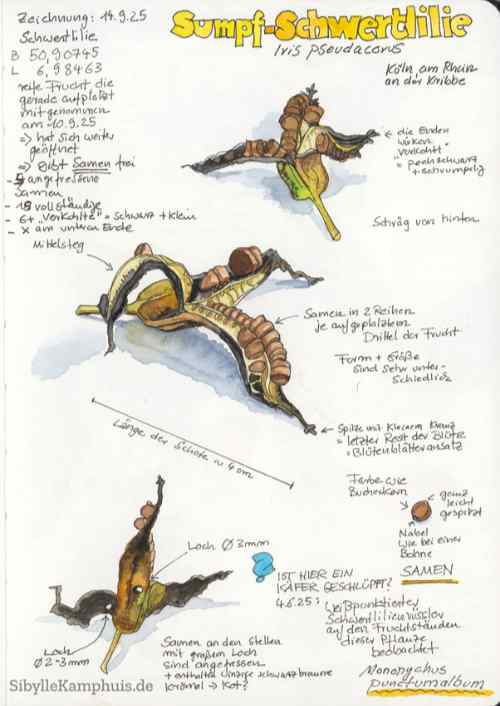 Zeichnung: 14.9.25
Schwertlilie
B 50,90745
L 6,98463
reife Frucht, die
gerade aufplatzt
mitgenommen
am 10.9.25
=> hat sich weiter
geöffnet
=> gibt Samen frei
- 5 angefressene
Samen
- 18 vollständige
- 6+ "verkohlte" = schwarz + klein
- x am unteren Ende
Sumpf-Schwertlilie
Iris pseudacorus
Köln, am Rhein
an der Kribbe
die Enden
wirken
"verkohlt"
= pechschwarz
+ schrumpelig
Schräg von hinten
Mittelsteg
Samen in 2 Reihen
je aufgeplatztem
Drittel der Frucht
Form + Größe
sind sehr unter-
schiedlich
Spitze mit kleinem Kreuz
= letzter Rest der Blüte
= Blütenblätteransatz
Länge der Schote ~ 4 cm
Farbe wie
Bucheckern
ganz
leicht
gespitzt
Nabel
wie bei einer
Bohne
SAMEN
Loch Ø 3mm
Loch
Ø 2-3mm
? IST HIER EIN
KÄFER GESCHLÜPFT?
4.6.25: Weißpunktierter
Schwertlilienrüssler
auf den Fruchtständen
dieser Pflanze
beobachtet
Mononychus
punctumalbum
Samen an den Stellen
mit großem Loch
sind angefressen
+ enthalten winzige schwarzbraune
Krümel → Kot?
SibylleKamphuis.de